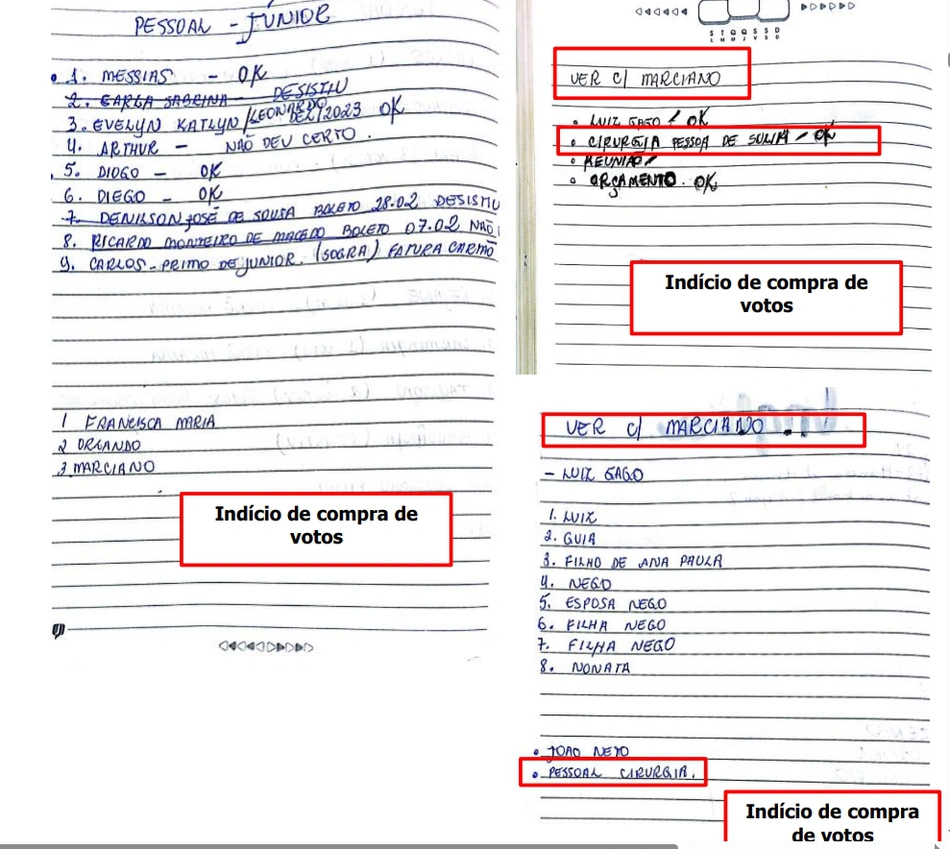 PESSOAL - JÚNIOR
1. MESSIAS - OK
2. CARLA SABRINA - DESISTIU
3. EVELYN KATLYN/LEONARDO DEZ/2023 OK
4. ARTHUR - NÃO DEU CERTO.
5. DIOGO - OK
6. DIEGO - OK
7. DENILSON JOSÉ DE SOUSA BOLETO 28.02 DESISTIU
8. RICARDO MONTEIRO DE MACEDO BOLETO 07.02 NÃO
9. CARLOS - PRIMO DE JUNIOR. (SOGRA) FATURA CARTÃO
1 FRANCISCA MARIA
2 ORLANDO
3 MARCIANO
Indício de compra de
votos
S T Q Q S S D
VER C/ MARCIANO
• LUIZ GAGO / OK
• CIRURGIA PESSOA DE / OK
• REUNIÃO
• ORÇAMENTO. OK
Indício de compra de
votos
VER C/ MARCIANO.
- LUIZ GAGO
1. LUIZ
2. GUIA
3. FILHO DE ANA PAULA
4. NEGO
5. ESPOSA NEGO
6. FILHA NEGO
7. FILHA NEGO
8. NONATA
• JOAO NETO
• PESSOAL CIRURGIA.
Indício de compra
de votos